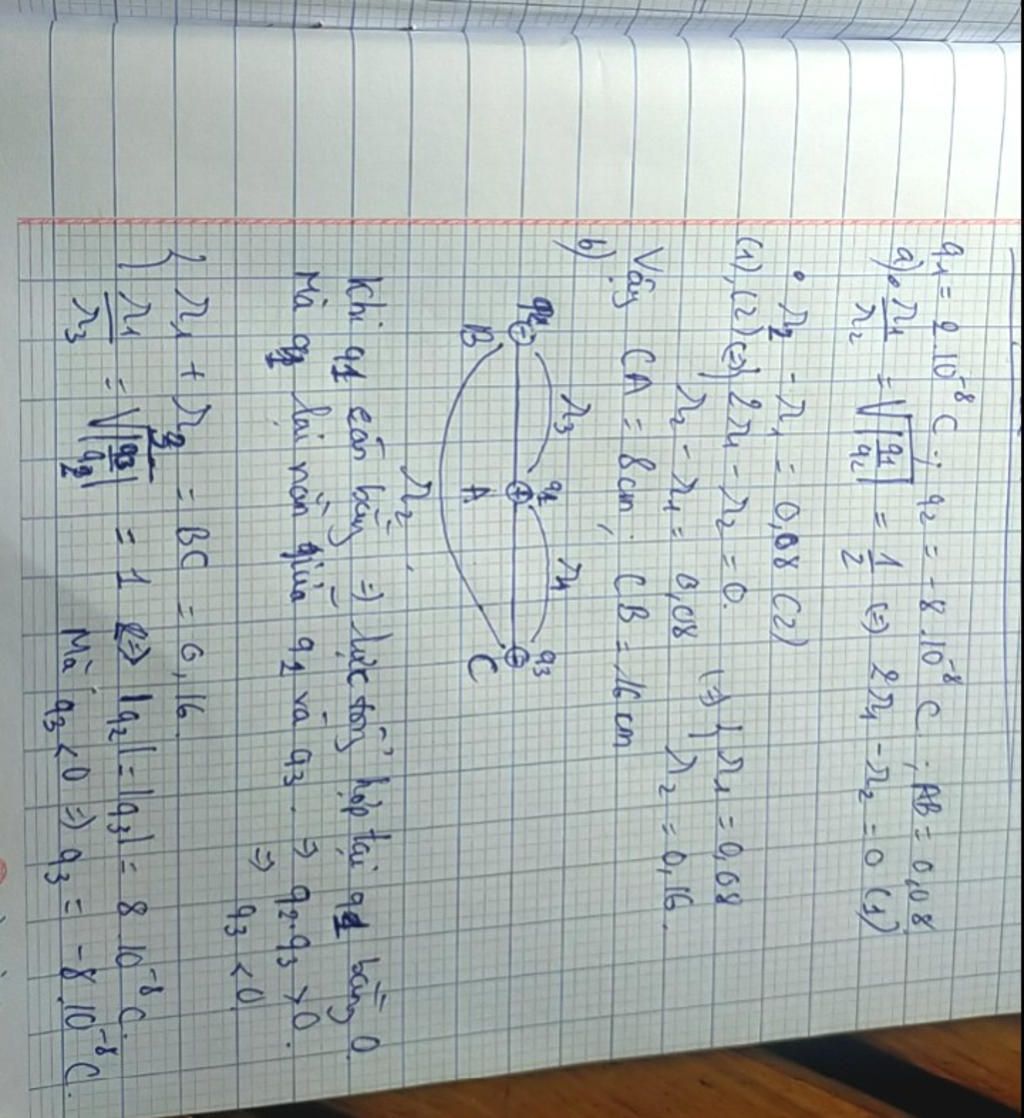 q₁ = 2.10⁻⁸ C ; q₂ = -8.10⁻⁸ C ; AB = 0,08
a) • r₁/r₂ = √|q₁/q₂| = 1/2 (=) 2r₁ - r₂ = 0 (1)
• r₂ - r₁ = 0,08 (2)
(1), (2) (=) { 2r₁ - r₂ = 0. (=) { r₁ = 0,08
r₂ - r₁ = 0,08 r₂ = 0,16.
Vậy CA = 8cm ; CB = 16cm
b)
r₃ r₁
q₂ q₁ q₃
B A C
r₂
Khi q₁ cân bằng => lực tổng hợp tại q₁ bằng 0
Mà q₁ lại nằm giữa q₂ và q₃. => q₂.q₃ > 0.
=> q₃ < 0
{ r₁ + r₃ = BC = 0,16
r₁/r₃ = √|q₃/q₂| = 1 (=) |q₂| = |q₃| = 8.10⁻⁸ C.
Mà q₃ < 0 => q₃ = -8.10⁻⁸ C.